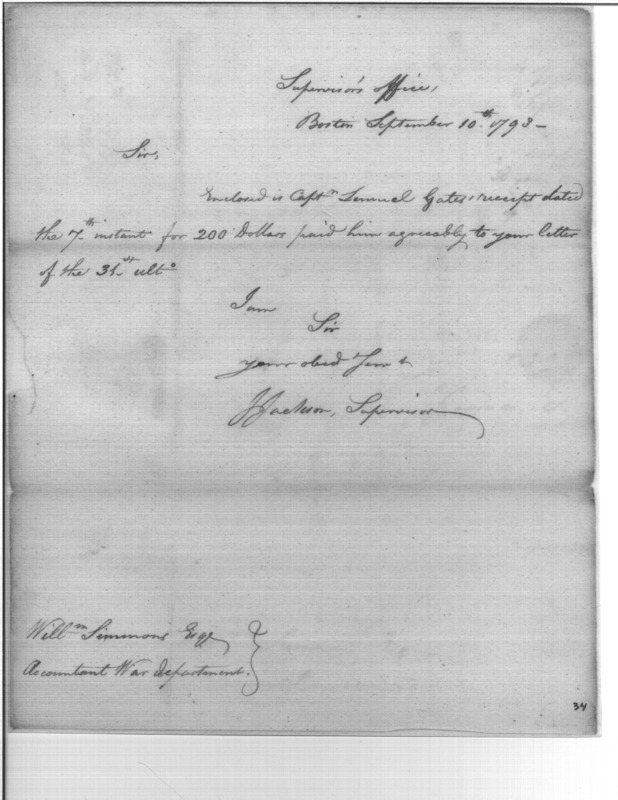 Supervisor's office,
Boston September 10.th 1793 -
Sir,
Enclosed is Capt.n Lemuel Gates, receipt dated
the 7.th instant for 200 Dollars paid him agreeably to your letter
of the 31.st ult.o
I am
Sir
your obed.t Serv.t
J Jackson, Supervisor
Will.m Simmons Esq.r
Accountant War department.
34